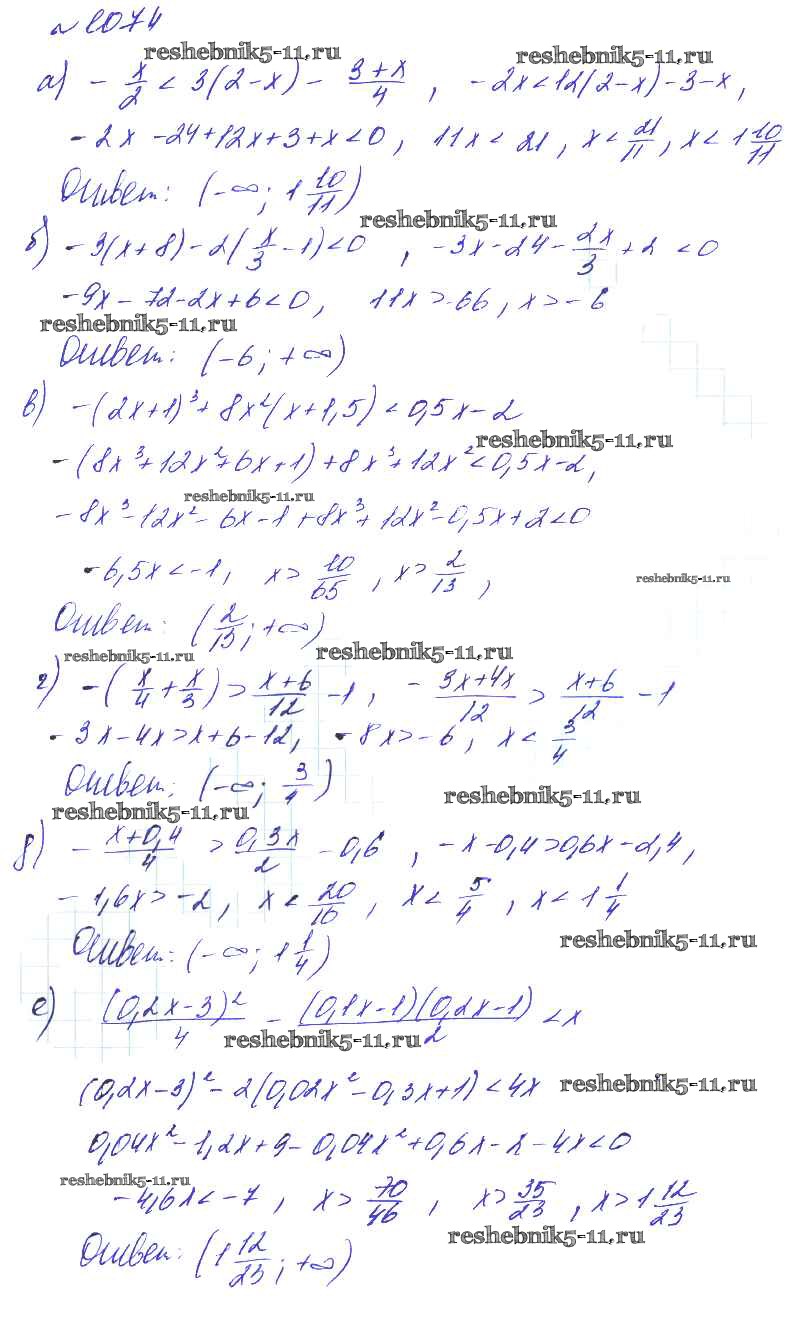 №1074
reshebnik5-11.ru reshebnik5-11.ru
а) - x/2 < 3(2-x) - (3+x)/4 , -2x<12(2-x)-3-x,
-2x-24+12x+3+x<0, 11x<21, x<21/11, x<1 10/11
Ответ: (-∞; 1 10/11)
reshebnik5-11.ru
б) -3(x+8)-2(x/3-1)<0 , -3x-24-2x/3+2<0
-9x-72-2x+6<0, 11x>-66, x>-6
reshebnik5-11.ru
Ответ: (-6; +∞)
в) -(2x+1)³+8x²(x+1,5)<0,5x-2
reshebnik5-11.ru
-(8x³+12x²+6x+1)+8x³+12x²<0,5x-2,
reshebnik5-11.ru
-8x³-12x²-6x-1+8x³+12x²-0,5x+2<0
-6,5x<-1, x>10/65 , x>2/13 ,
reshebnik5-11.ru
Ответ: (2/13; +∞)
reshebnik5-11.ru reshebnik5-11.ru
г) -(x/4+x/3)>(x+6)/12-1, -(3x+4x)/12>(x+6)/12-1
-3x-4x>x+6-12, -8x>-6, x<3/4
Ответ: (-∞; 3/4)
reshebnik5-11.ru reshebnik5-11.ru
д) -(x+0,4)/4>0,3x/2-0,6 , -x-0,4>0,6x-2,4,
-1,6x>-2, x<20/16, x<5/4, x<1 1/4
Ответ: (-∞; 1 1/4)
reshebnik5-11.ru
е) (0,2x-3)²/4 - (0,1x-1)(0,2x-1)/2 <x
reshebnik5-11.ru
(0,2x-3)²-2(0,02x²-0,3x+1)<4x
reshebnik5-11.ru
0,04x²-1,2x+9-0,04x²+0,6x-2-4x<0
reshebnik5-11.ru
-4,6x<-7, x>70/46, x>35/23, x>1 12/23
reshebnik5-11.ru
Ответ: (1 12/23; +∞)